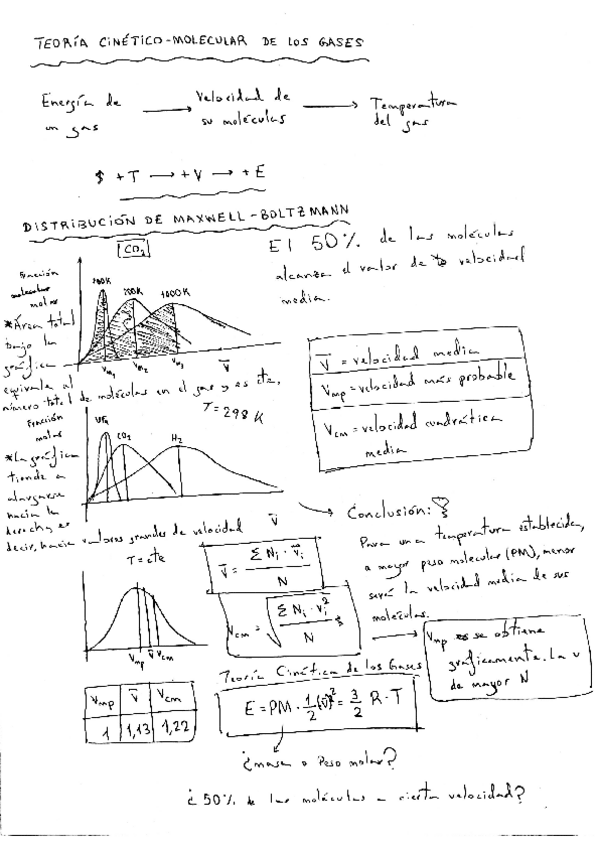 TEORÍA CINÉTICO-MOLECULAR DE LOS GASES
Energía de un gas → Velocidad de su moléculas → Temperatura del gas
+T → +V → +E
DISTRIBUCIÓN DE MAXWELL-BOLTZMANN
CO2
El 50% de las moléculas
alcanza el valor de velocidad
media.
Fracción
molar
1000K
Vm1 Vm2 Vm3 V̄
*Área total
bajo la
gráfica
equivale al
número total de moléculas en el gas y es cte,
V̄ = velocidad media
Vmp = velocidad más probable
Vcm = velocidad cuadrática
media
T = 298 K
Fracción
molar
UF6 CO2 H2
*La gráfica
tiende a
alargarse
hacia la
derecha, es
decir, hacia valores grandes de velocidad V̄
→ Conclusión:
Para una temperatura establecida,
a mayor peso molecular (PM), menor
será la velocidad media de sus
moléculas.
T = cte
Vmp V̄ Vcm
V̄ = Σ Ni · V̄i / N
Vcm = √ Σ Ni · Vi² / N
→ Vmp se obtiene
gráficamente. La v
de mayor N
Teoría Cinética de los Gases
Vmp V̄ Vcm
1 1,13 1,22
E = PM · 1/2 (v̄)² = 3/2 R · T
¿masa o Peso molar?
¿50% de las moléculas a cierta velocidad?